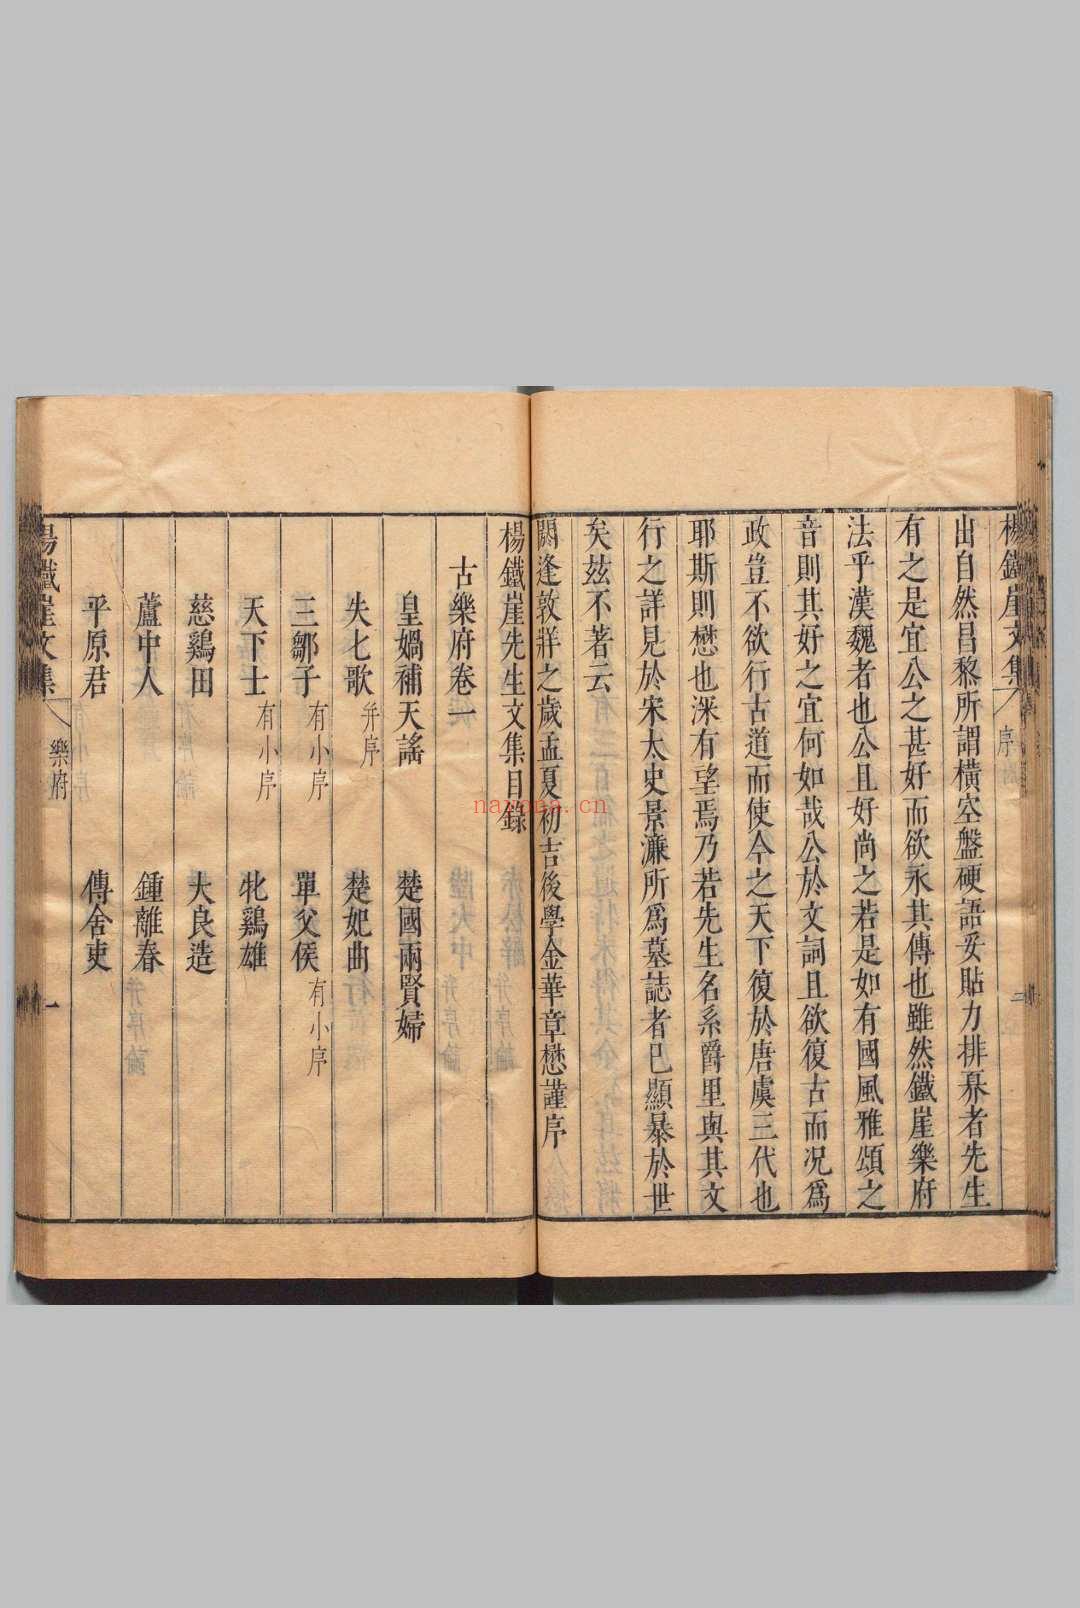 楊鐵崖文集 序 二
出自然昌黎所謂橫空盤硬語妥貼力排奡者先生
有之是宜公之甚好而欲永其傳也雖然鐵崖樂府
法乎漢魏者也公且好尚之若是如有國風雅頌之
音則其好之宜何如哉公於文詞且欲復古而況爲
政豈不欲行古道而使今之天下復於唐虞三代也
耶斯則懋也深有望焉乃若先生名系爵里與其文
行之詳見於宋太史景濂所爲墓誌者已顯暴於世
矣玆不著云
閼逢敦牂之歲孟夏初吉後學金華章懋謹序
楊鐵崖先生文集目錄
古樂府卷一
皇媧補天謠 楚國兩賢婦
失七歌 并序 楚妃曲
三鄒子 有小序 單父侯 有小序
天下士 有小序 牝鷄雄
慈鷄田 大良造
蘆中人 鍾離春
平原君 傳舍吏
楊鐵崖文集 樂府 一
nayona.cn